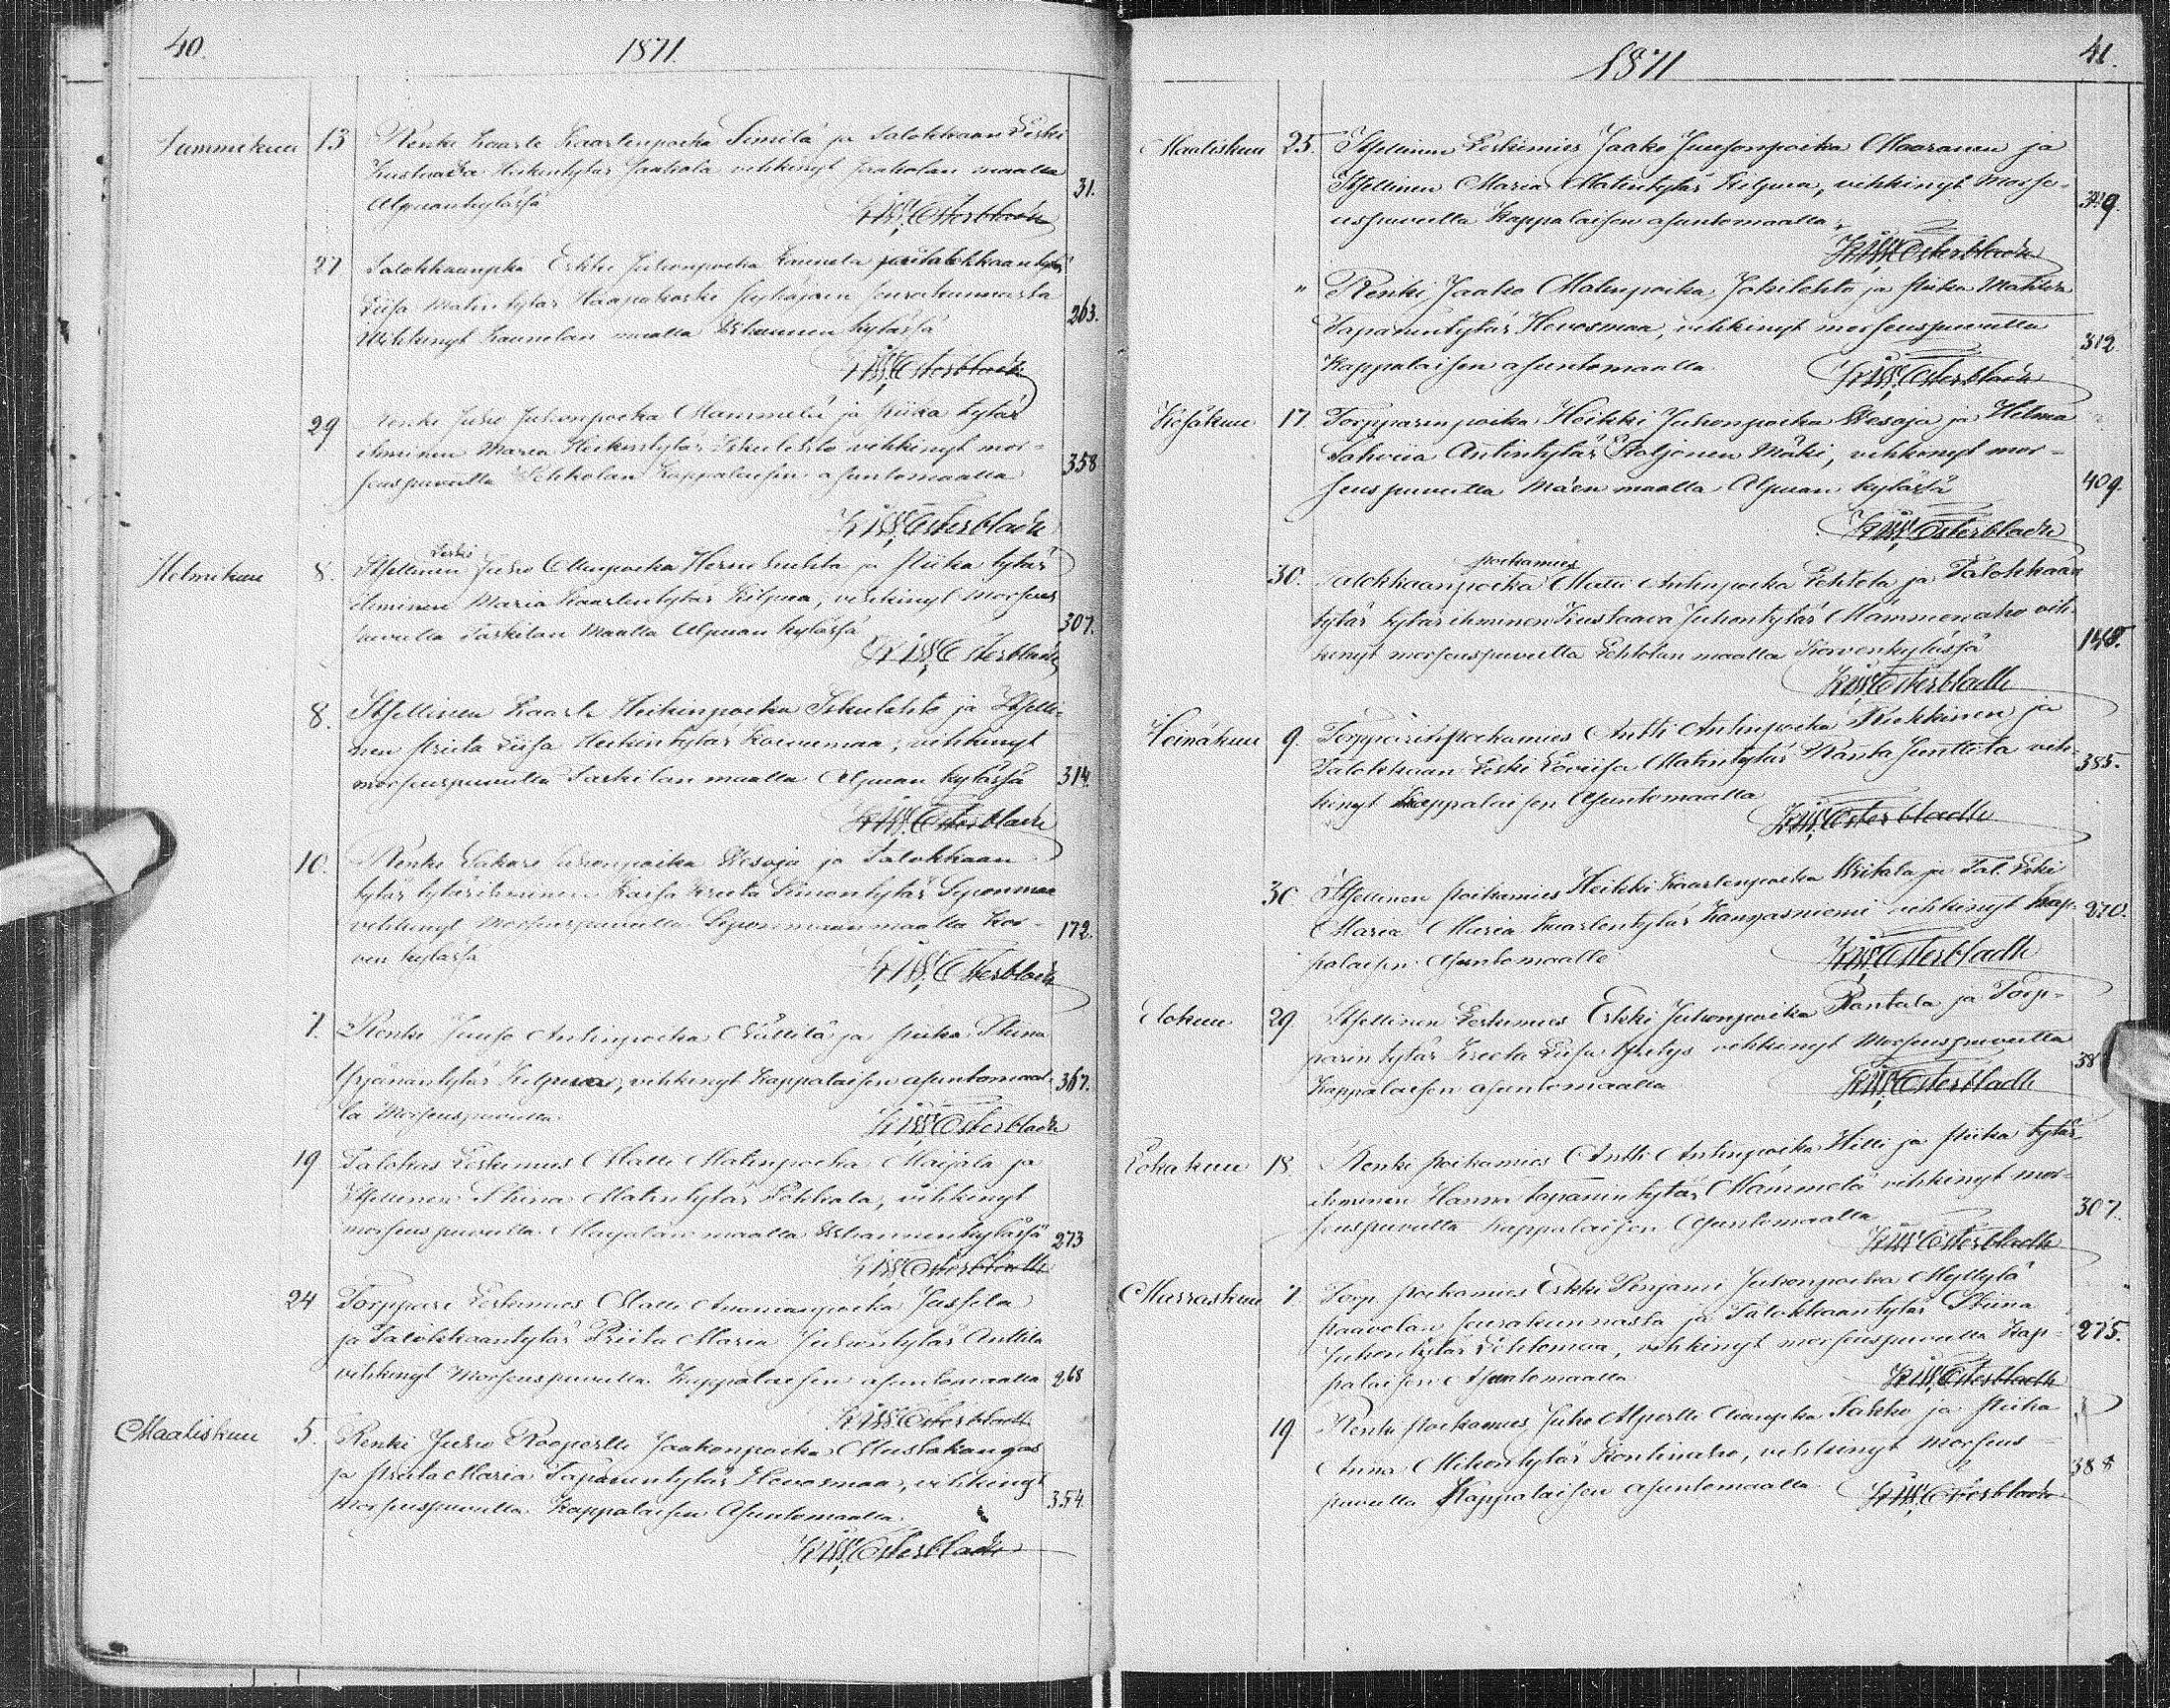 40.
1871.
Tammikuu 13 Renki Kaarle Kaarlenpoika Similä ja Talokkaan Leski
Kustaava Heikintytär Jaakola vihkinyt Jaakolan maalla
Alpuankylässä 31.
K:W: Österbladh
27 Talokkaanpka Erkki Juhonpoika Kaunela ja Talokkaantytär
Liisa Matintytär Haapakoski Pyhäjoen seurakunnasta
Vihkinyt Kaunelan maalla kylässä 263.
K:W: Österbladh
29 Renki Juho Juhonpoika Mammela ja Piika tytär
ihminen Maria Heikintytär Iskulehto vihkinyt mor-
seuspuvulla Kappalaisen asuntomaalla 358
K:W: Österbladh
Leski
Helmikuu 8. Itsellinen Juho Ollinpoika Hernehuhta ja Piika tytär
ihminen Maria Kaarlentytär Kilpua, vihkinyt Morseus
puvulla Taskilan Maalla Alpuan kylässä 307.
K:W: Österbladh
8. Itsellinen Kaarle Heikinpoika Iskulehto ja Itselli-
nen Priita Liisa Heikintytär Kaivumaa, vihkinyt
morseuspuvulla Taskilan maalla Alpuan kylässä 314.
K:W: Österbladh
10. Renki Sakari Juhonpoika Wesoja ja Talokkaan
tytär tytärihminen Kaisa Kreeta Simontytär Siponmaa
vihkinyt Morseuspuvulla Siponmaan maalla Kor-
ven kylässä 172.
K:W: Österbladh
7. Renki Juuso Antinpoika Nällilä ja Piika Stiina
Yrjänäntytär Kilpua, vihkinyt Kappalaisen asuntomaal-
la Morseuspuvulla 367.
K:W: Österbladh
19 Talokas Leskimies Matti Matinpoika Maijala ja
Itsellinen Stiina Matintytär Pokkala, vihkinyt
morseuspuvulla Maijalan maalla 273
K:W: Österbladh
24 Torppari Leskimies Matti Ananianpoika Jussila
ja Talokkaantytär Priita Maria Juhontytär Anttila
vihkinyt Morseuspuvulla Kappalaisen asuntomaalla 268
K:W: Österbladh
Maaliskuu 5. Renki Juho Roopertti Jaakonpoika Mustakangas
ja Priita Maria Tapanintytär Hevosmaa, vihkinyt
Morseuspuvulla Kappalaisen Asuntomaalla. 354.
K:W: Österbladh
1871
41.
Maaliskuu 25. Itsellinen Leskimies Jaako Juusonpoika Maaranen ja
Itsellinen Maria Matintytär Kilpua, vihkinyt Morse-
uspuvulla Kappalaisen asuntomaalla
K:W: Österbladh
" Renki Jaako Matinpoika Jokilehto ja Piika Matilda
Tapanintytär Hevosmaa, vihkinyt morseuspuvulla
Kappalaisen asuntomaalla 312
K:W: Österbladh
Kesäkuu 17. Torpparinpoika Heikki Juhonpoika Wesoja ja Helma
Sohviia Antintytär Poljonen Mäki, vihkinyt mor-
seuspuvulla Mäen maalla Alpuan kylässä 409.
K:W: Österbladh
poikamies
30. Talokkaanpoika Matti Antinpoika Lehtola ja Talokkaan
tytär tytärihminen Kustaava Juhontytär Mämmenaho vih-
kinyt morseuspuvulla Lehtolan maalla Korvenkylässä 148.
K:W: Österbladh
Heinäkuu 9. Torpparinpoikamies Antti Antinpoika Ruikkinen ja
Talokkaan Leski Loviisa Matintytär Ranta Junttila vih-
kinyt Kappalaisen Asuntomaalla 385.
K:W: Österbladh
30. Itsellinen Poikamies Heikki Kaarlenpoika Writala ja Tal. Leski
Maria Maria Kaarlentytär Kangasniemi vihkinyt Kap-
palaisen Asuntomaalle 270.
K:W: Österbladh
Elokuu 29. Itsellinen Leskimies Erkki Juhonpoika Rantala ja Torp-
parin tytär Kreeta Liisa vihkinyt Morseuspuvulla
Kappalaisen asuntomaalla 38
K:W: Österbladh
Lokakuu 18. Renki Poikamies Antti Antinpoika Hilli ja Piika tytär-
ihminen Hanna Tapanintytär Mämmelä vihkinyt mor-
seuspuvulla Kappalaisen Asuntomaalla 307.
K:W: Österbladh
Marraskuu 7. Torp. Poikamies Erkki Penjami Juhonpoika Myllylä
Paavolan seurakunnasta ja Talokkaantytär Stiina
Juhontytär Lehtomaa, vihkinyt morseuspuvulla Kap-
palaisen Asuntomaalla 275.
K:W: Österbladh
19 Renki Poikamies Juho Alpertti Sakko ja Piika
Anna Mikontytär Kontinaho, vihkinyt Morseus-
puvulla Kappalaisen asuntomaalla 388
K:W: Österbladh